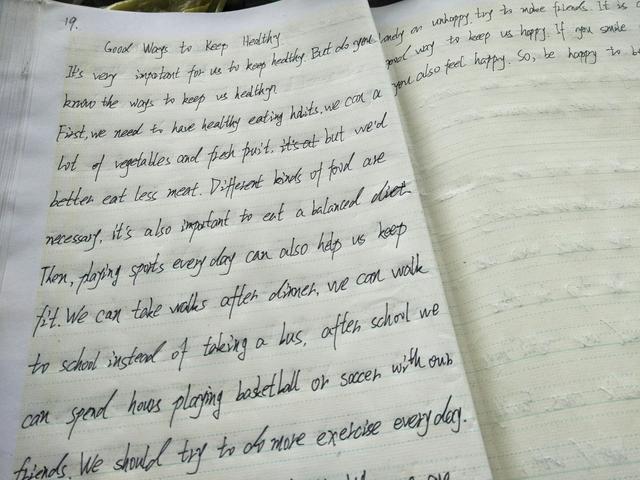 19.
Good Ways to Keep Healthy
It's very important for us to keep healthy. But do you
know the ways to keep us healthy?
First, we need to have healthy eating habits. we can a
lot of vegetables and fresh fruit. it's at but we'd
better eat less meat. Different kinds of food are
necessary, it's also important to eat a balanced diet.
Then, playing sports every day can also help us keep
fit. We can take walks after dinner, we can walk
to school instead of taking a bus, after school we
can spend hours playing basketball or soccer with our
friends. We should try to do more exercise every day.
or unhappy, try to make friends. It is
way to keep us happy. If you smile
you also feel happy. So, be happy to